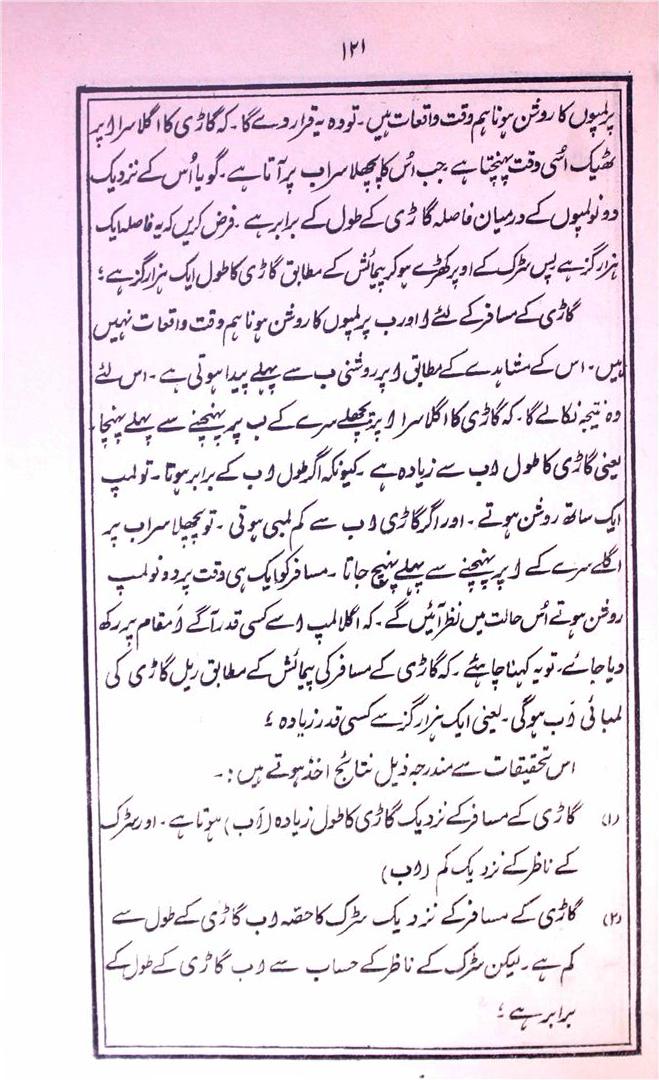 ۱۲۱
پر لمپوں کا روشن ہونا ہم وقت واقعات ہیں۔ تو وہ یہ قرار دے گا۔ کہ گاڑی کا اگلا سرا ا پر
ٹھیک اُسی وقت پہنچتا ہے جب اُس کا پچھلا سرا ب پر آتا ہے۔ گویا اُس کے نزدیک
دونو لمپوں کے درمیان فاصلہ گاڑی کے طول کے برابر ہے۔ فرض کریں کہ یہ فاصلہ ایک
ہزار گز ہے پس سڑک کے اوپر کھڑے ہو کر پیمائش کے مطابق گاڑی کا طول ایک ہزار گز ہے ؛
گاڑی کے مسافر کے لئے ا اور ب پر لمپوں کا روشن ہونا ہم وقت واقعات نہیں
ہیں۔ اس کے مشاہدے کے مطابق ا پر روشنی ب سے پہلے پیدا ہوتی ہے۔ اس لئے
وہ نتیجہ نکالے گا۔ کہ گاڑی کا اگلا سرا ا پر پچھلے سرے کے ب پر پہنچنے سے پہلے پہنچا۔
یعنی گاڑی کا طول اب سے زیادہ ہے۔ کیونکہ اگر طول اب کے برابر ہوتا۔ تو لمپ
ایک ساتھ روشن ہوتے۔ اور اگر گاڑی اب سے کم لمبی ہوتی۔ تو پچھلا سرا ب پر
اگلے سرے کے ا پر پہنچنے سے پہلے پہنچ جاتا۔ مسافر کو ایک ہی وقت پر دونو لمپ
روشن ہوتے اُس حالت میں نظر آئیں گے۔ کہ اگلا لمپ اسے کسی قدر آگے اَ مقام پر رکھ
دیا جائے۔ تو یہ کہنا چاہئے۔ کہ گاڑی کے مسافر کی پیمائش کے مطابق ریل گاڑی کی
لمبائی اَب ہوگی۔ یعنی ایک ہزار گز سے کسی قدر زیادہ ؛
اس تحقیقات سے مندرجہ ذیل نتائج اخذ ہوتے ہیں:۔
(۱) گاڑی کے مسافر کے نزدیک گاڑی کا طول زیادہ (اَب) ہوتا ہے۔ اور سڑک
کے ناظر کے نزدیک کم (اب)
(۲) گاڑی کے مسافر کے نزدیک سڑک کا حصہ اب گاڑی کے طول سے
کم ہے۔ لیکن سڑک کے ناظر کے حساب سے اب گاڑی کے طول کے
برابر ہے ؛